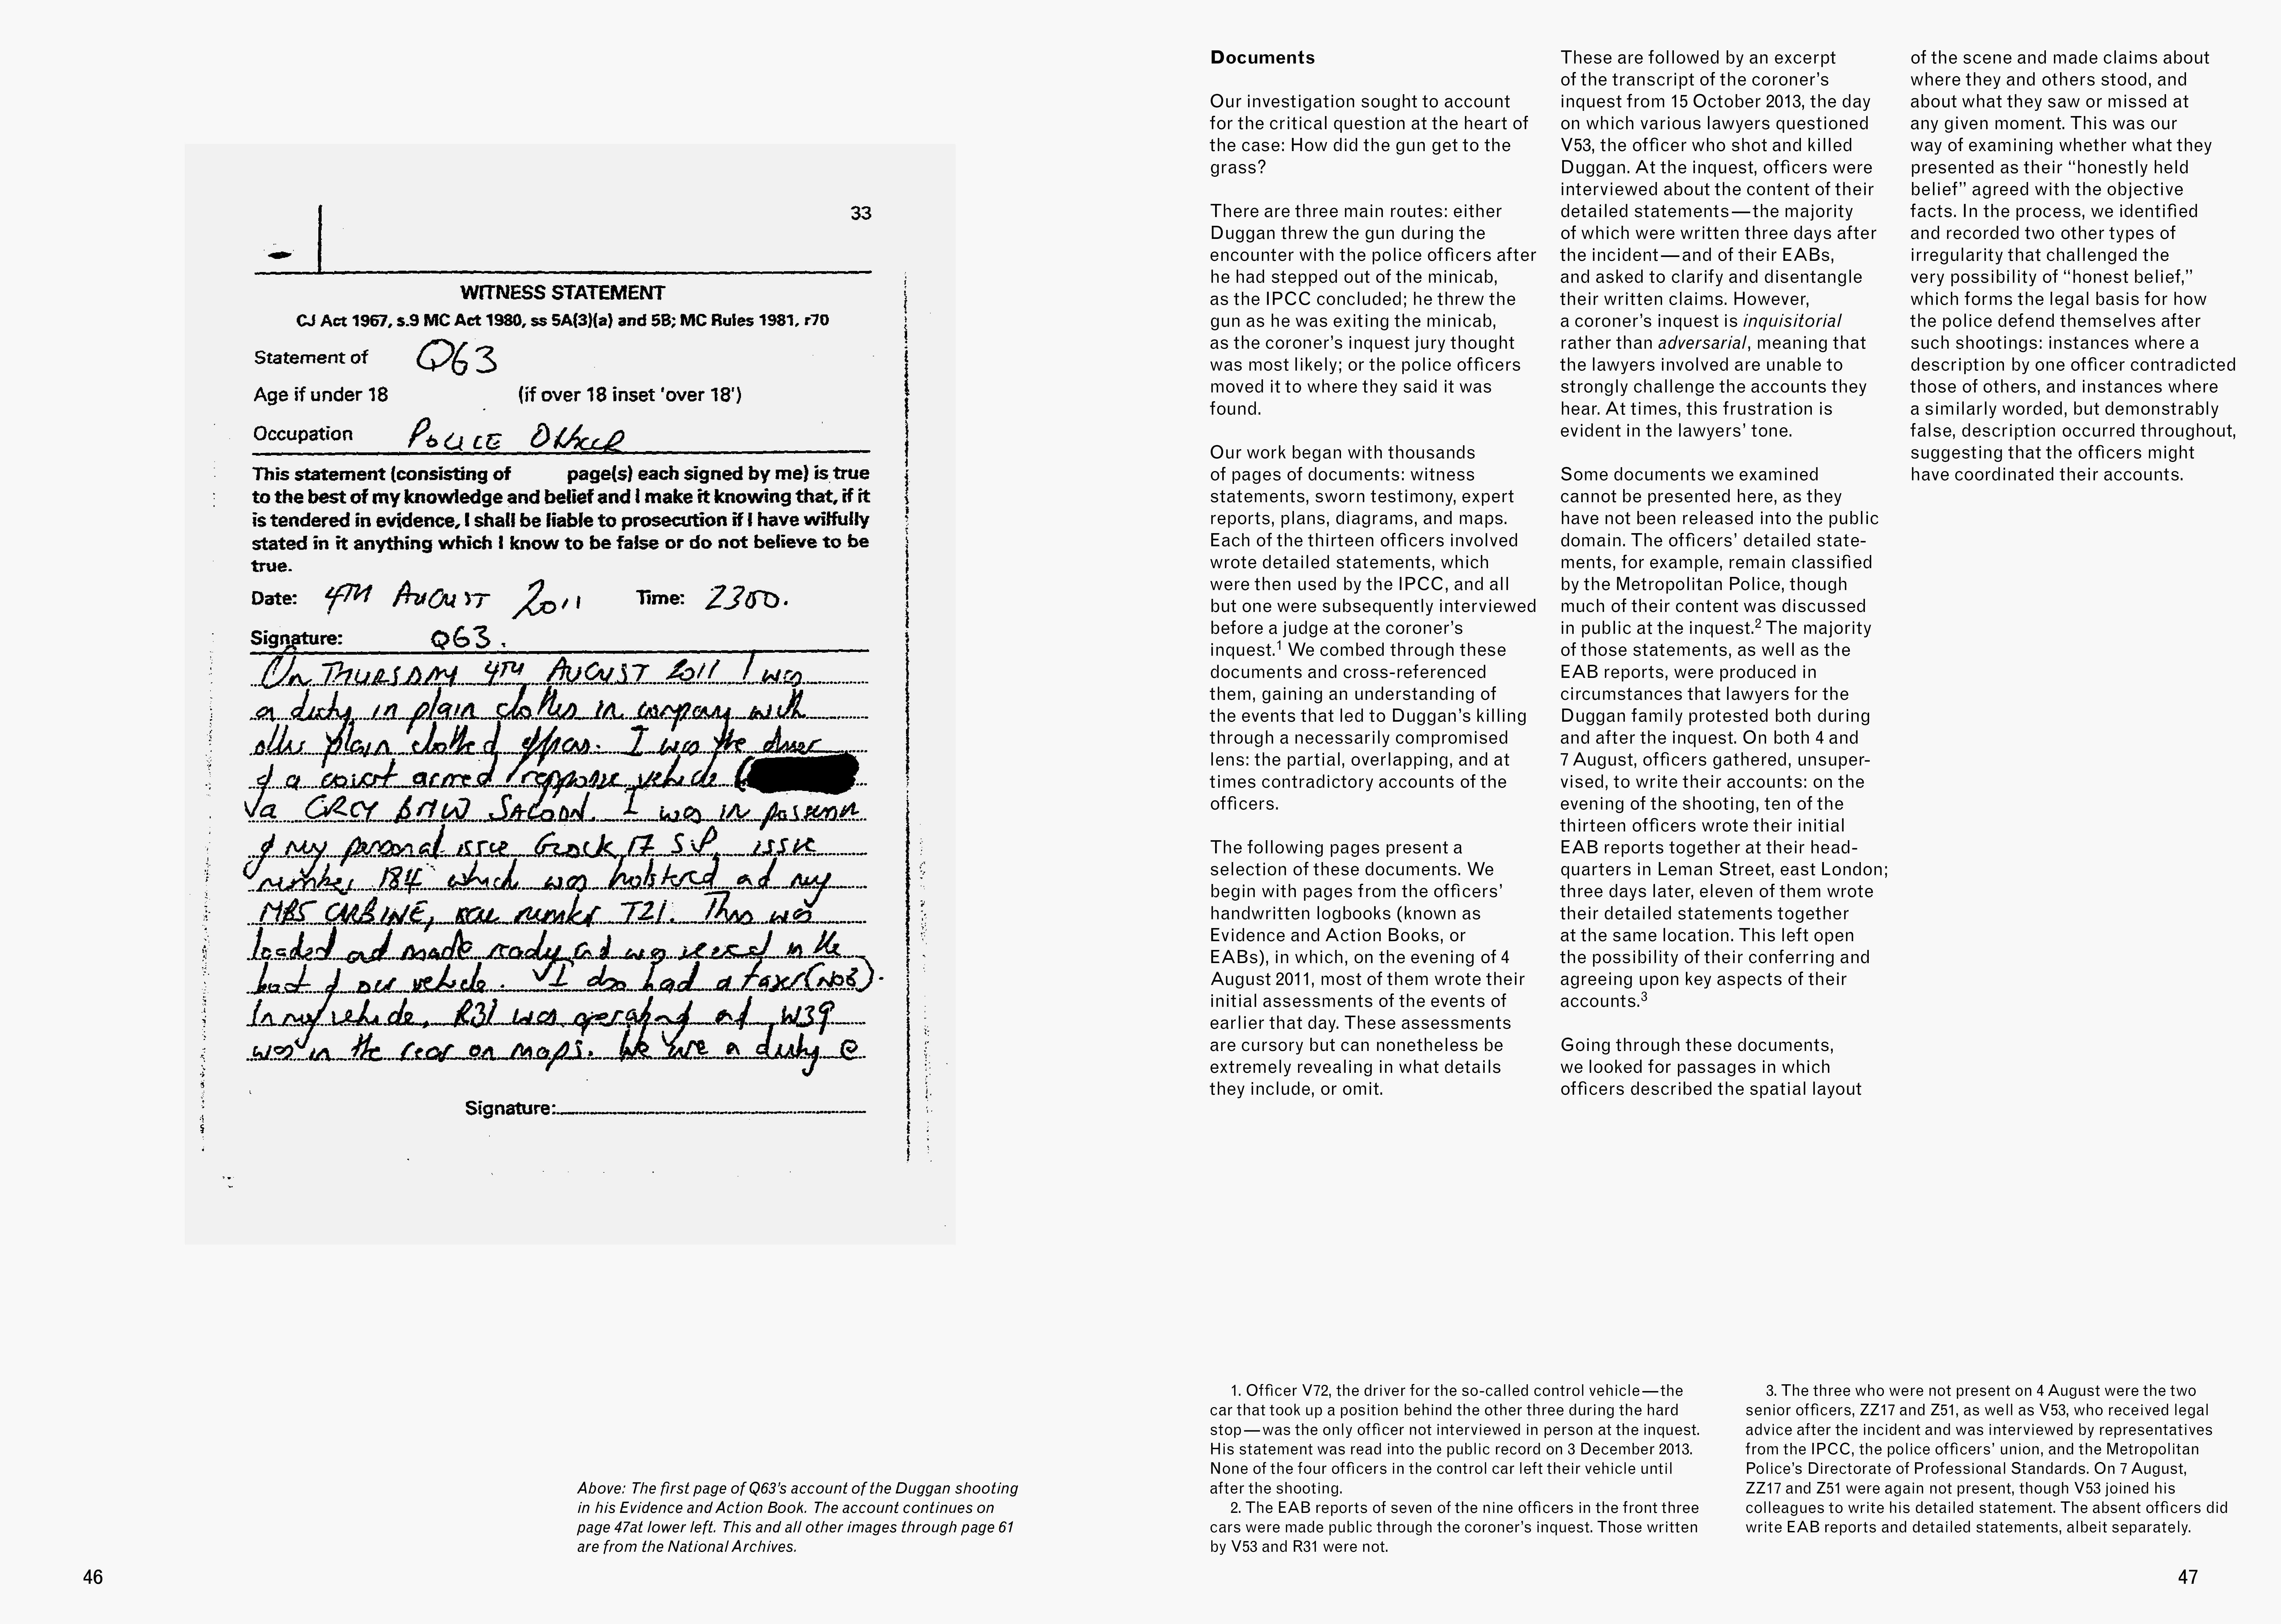 33
WITNESS STATEMENT
CJ Act 1967, s.9 MC Act 1980, ss 5A(3)(a) and 5B; MC Rules 1981, r70
Statement of Q63
Age if under 18 (if over 18 inset 'over 18')
Occupation POLICE OFFICER
This statement (consisting of page(s) each signed by me) is true
to the best of my knowledge and belief and I make it knowing that, if it
is tendered in evidence, I shall be liable to prosecution if I have wilfully
stated in it anything which I know to be false or do not believe to be
true.
Date: 4TH AUGUST 2011 Time: 2300.
Signature: Q63.
On THURSDAY 4TH AUGUST 2011 I was
on duty in plain clothes in company with
other plain clothed officers. I was the driver
of a covert armed response vehicle (
a GREY BMW SALOON. I was in possession
of my personal issue Glock 17 S.P. issue
number 184 which was holstered and my
MP5 CARBINE, number T21. This was
loaded and made ready and was in the
boot of our vehicle. I also had a taser (NO8).
In my vehicle, R31 was operating and W39
was in the rear on maps. We were on duty @
Signature:
Above: The first page of Q63's account of the Duggan shooting
in his Evidence and Action Book. The account continues on
page 47at lower left. This and all other images through page 61
are from the National Archives.
46
Documents
Our investigation sought to account
for the critical question at the heart of
the case: How did the gun get to the
grass?
There are three main routes: either
Duggan threw the gun during the
encounter with the police officers after
he had stepped out of the minicab,
as the IPCC concluded; he threw the
gun as he was exiting the minicab,
as the coroner's inquest jury thought
was most likely; or the police officers
moved it to where they said it was
found.
Our work began with thousands
of pages of documents: witness
statements, sworn testimony, expert
reports, plans, diagrams, and maps.
Each of the thirteen officers involved
wrote detailed statements, which
were then used by the IPCC, and all
but one were subsequently interviewed
before a judge at the coroner's
inquest.1 We combed through these
documents and cross-referenced
them, gaining an understanding of
the events that led to Duggan's killing
through a necessarily compromised
lens: the partial, overlapping, and at
times contradictory accounts of the
officers.
The following pages present a
selection of these documents. We
begin with pages from the officers'
handwritten logbooks (known as
Evidence and Action Books, or
EABs), in which, on the evening of 4
August 2011, most of them wrote their
initial assessments of the events of
earlier that day. These assessments
are cursory but can nonetheless be
extremely revealing in what details
they include, or omit.
These are followed by an excerpt
of the transcript of the coroner's
inquest from 15 October 2013, the day
on which various lawyers questioned
V53, the officer who shot and killed
Duggan. At the inquest, officers were
interviewed about the content of their
detailed statements—the majority
of which were written three days after
the incident—and of their EABs,
and asked to clarify and disentangle
their written claims. However,
a coroner's inquest is inquisitorial
rather than adversarial, meaning that
the lawyers involved are unable to
strongly challenge the accounts they
hear. At times, this frustration is
evident in the lawyers' tone.
Some documents we examined
cannot be presented here, as they
have not been released into the public
domain. The officers' detailed state-
ments, for example, remain classified
by the Metropolitan Police, though
much of their content was discussed
in public at the inquest.2 The majority
of those statements, as well as the
EAB reports, were produced in
circumstances that lawyers for the
Duggan family protested both during
and after the inquest. On both 4 and
7 August, officers gathered, unsuper-
vised, to write their accounts: on the
evening of the shooting, ten of the
thirteen officers wrote their initial
EAB reports together at their head-
quarters in Leman Street, east London;
three days later, eleven of them wrote
their detailed statements together
at the same location. This left open
the possibility of their conferring and
agreeing upon key aspects of their
accounts.3
Going through these documents,
we looked for passages in which
officers described the spatial layout
of the scene and made claims about
where they and others stood, and
about what they saw or missed at
any given moment. This was our
way of examining whether what they
presented as their “honestly held
belief” agreed with the objective
facts. In the process, we identified
and recorded two other types of
irregularity that challenged the
very possibility of “honest belief,”
which forms the legal basis for how
the police defend themselves after
such shootings: instances where a
description by one officer contradicted
those of others, and instances where
a similarly worded, but demonstrably
false, description occurred throughout,
suggesting that the officers might
have coordinated their accounts.
1. Officer V72, the driver for the so-called control vehicle—the
car that took up a position behind the other three during the hard
stop—was the only officer not interviewed in person at the inquest.
His statement was read into the public record on 3 December 2013.
None of the four officers in the control car left their vehicle until
after the shooting.
2. The EAB reports of seven of the nine officers in the front three
cars were made public through the coroner's inquest. Those written
by V53 and R31 were not.
3. The three who were not present on 4 August were the two
senior officers, ZZ17 and Z51, as well as V53, who received legal
advice after the incident and was interviewed by representatives
from the IPCC, the police officers' union, and the Metropolitan
Police's Directorate of Professional Standards. On 7 August,
ZZ17 and Z51 were again not present, though V53 joined his
colleagues to write his detailed statement. The absent officers did
write EAB reports and detailed statements, albeit separately.
47